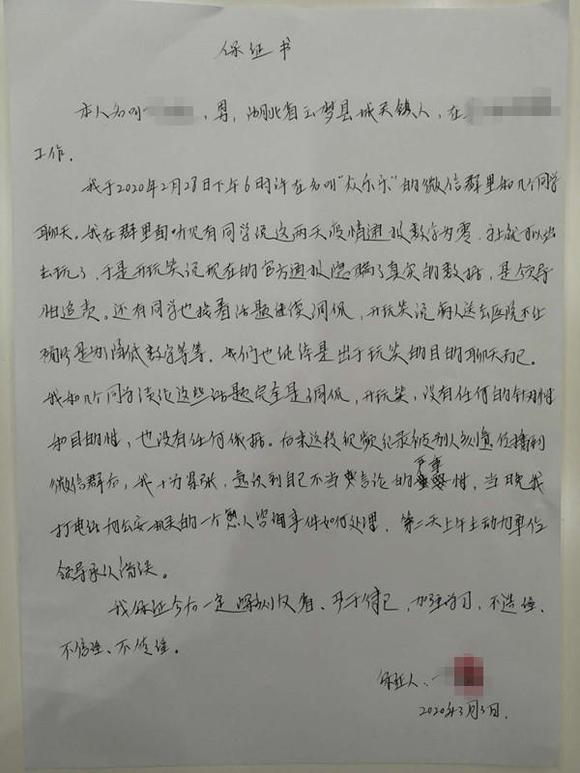 保证书
本人名叫，男，湖北省云梦县城关镇人，在
工作。
我于2020年2月28日下午6时许在名叫“众乐乐”的微信群里和几个同学
聊天。我在群里面听见有同学说这两天疫情通报数字为零，就可以出
去玩了，于是开玩笑说现在的官方通报隐瞒了真实的数据，是领导
怕追责。还有同学也接着话题继续调侃，开玩笑说病人送去医院不让
确诊是为降低数字等等。我们也纯体是出于玩笑的目的聊天而已。
我和几个同学谈论这些话题完全是调侃，开玩笑，没有任何的针对性
和目的性，也没有任何依据。后来这段视频记录被别人故意传播到
微信群后，我十分紧张，意识到自己不当言论的严重性，当晚我
打电话向公安机关的一个熟人咨询事件如何处理。第二天上午主动向单位
领导承认错误。
我保证今后一定深刻反省、严于律己，加强学习，不造谣、
不信谣、不传谣。
保证人：
2020年3月3日.